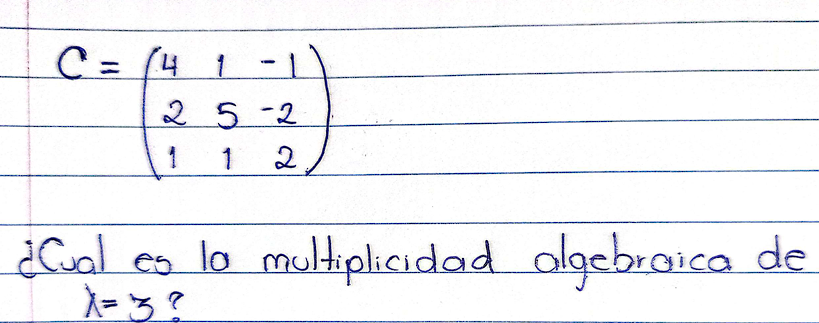 C = (4 1 -1
2 5 -2
1 1 2)
¿Cual es la multiplicidad algebraica de
λ= 3?